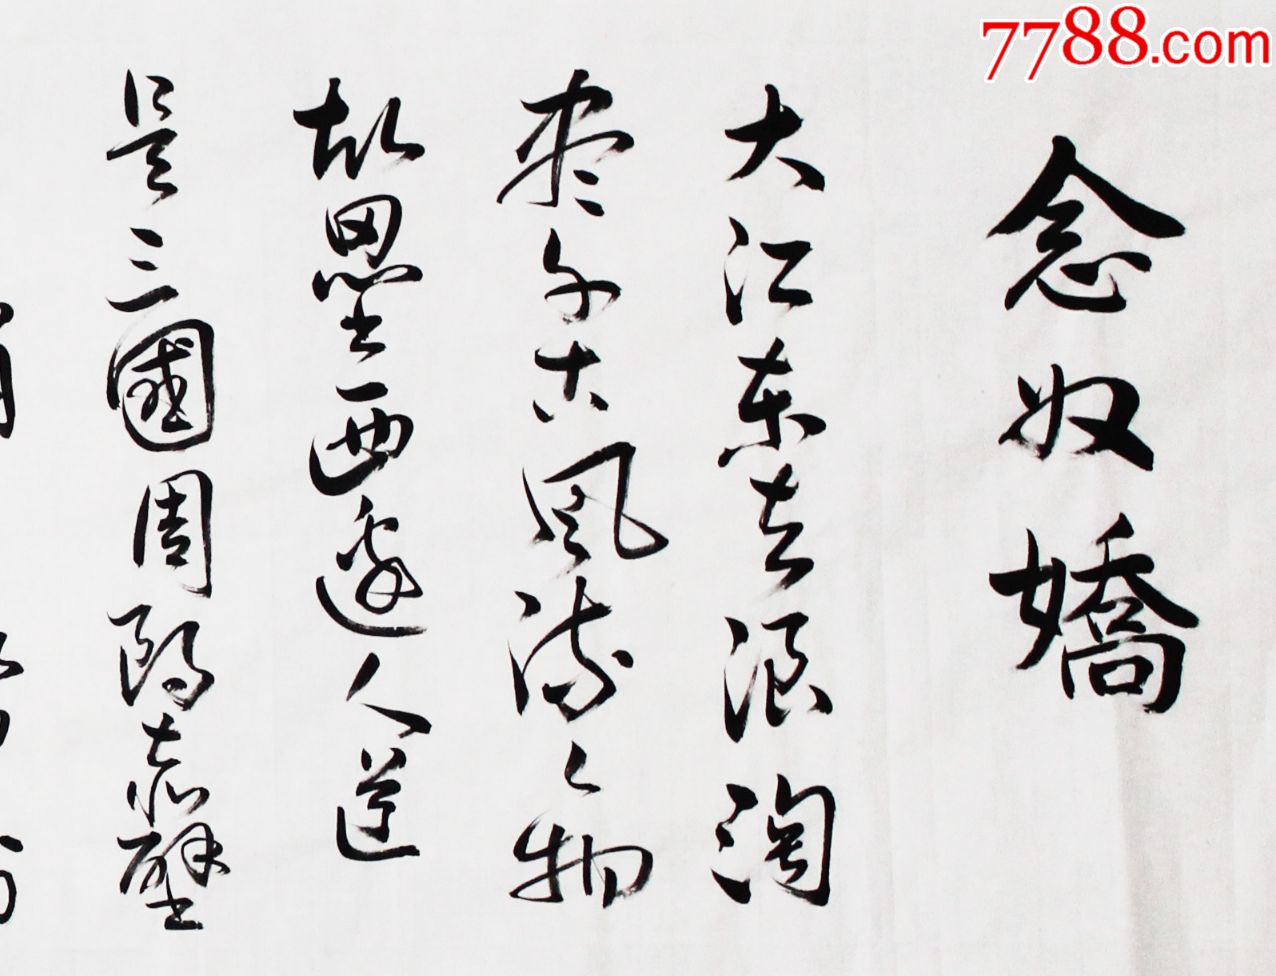 7788.com
念奴嬌
大江東去浪淘
盡千古風流人物
故壘西邊人道
是三國周郎赤壁